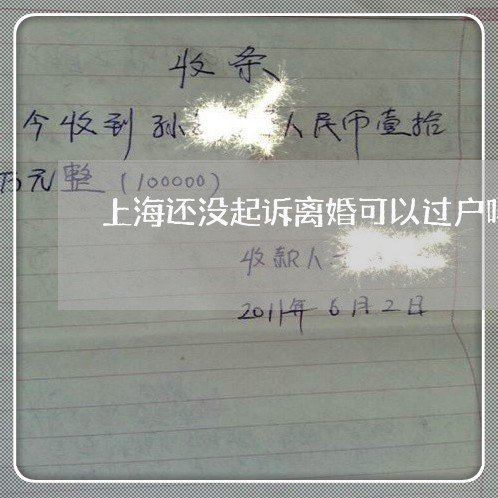 收条
今收到孙 人民币壹拾
万元整(100000)
上海还没起诉离婚可以过户
收款人
2011年6月2日